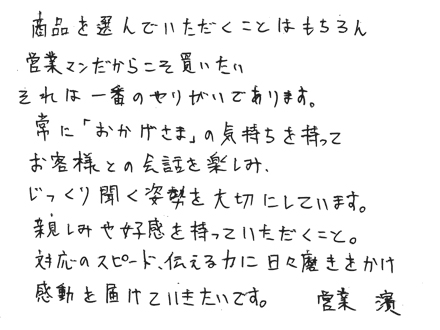 商品を選んでいただくことはもちろん
営業マンだからこそ買いたい
それは一番のやりがいであります。
常に「おかげさま」の気持ちを持って
お客様との会話を楽しみ、
じっくり聞く姿勢を大切にしています。
親しみや好感を持っていただくこと。
対応のスピード、伝える力に日々磨きをかけ
感動を届けていきたいです。 営業 濱